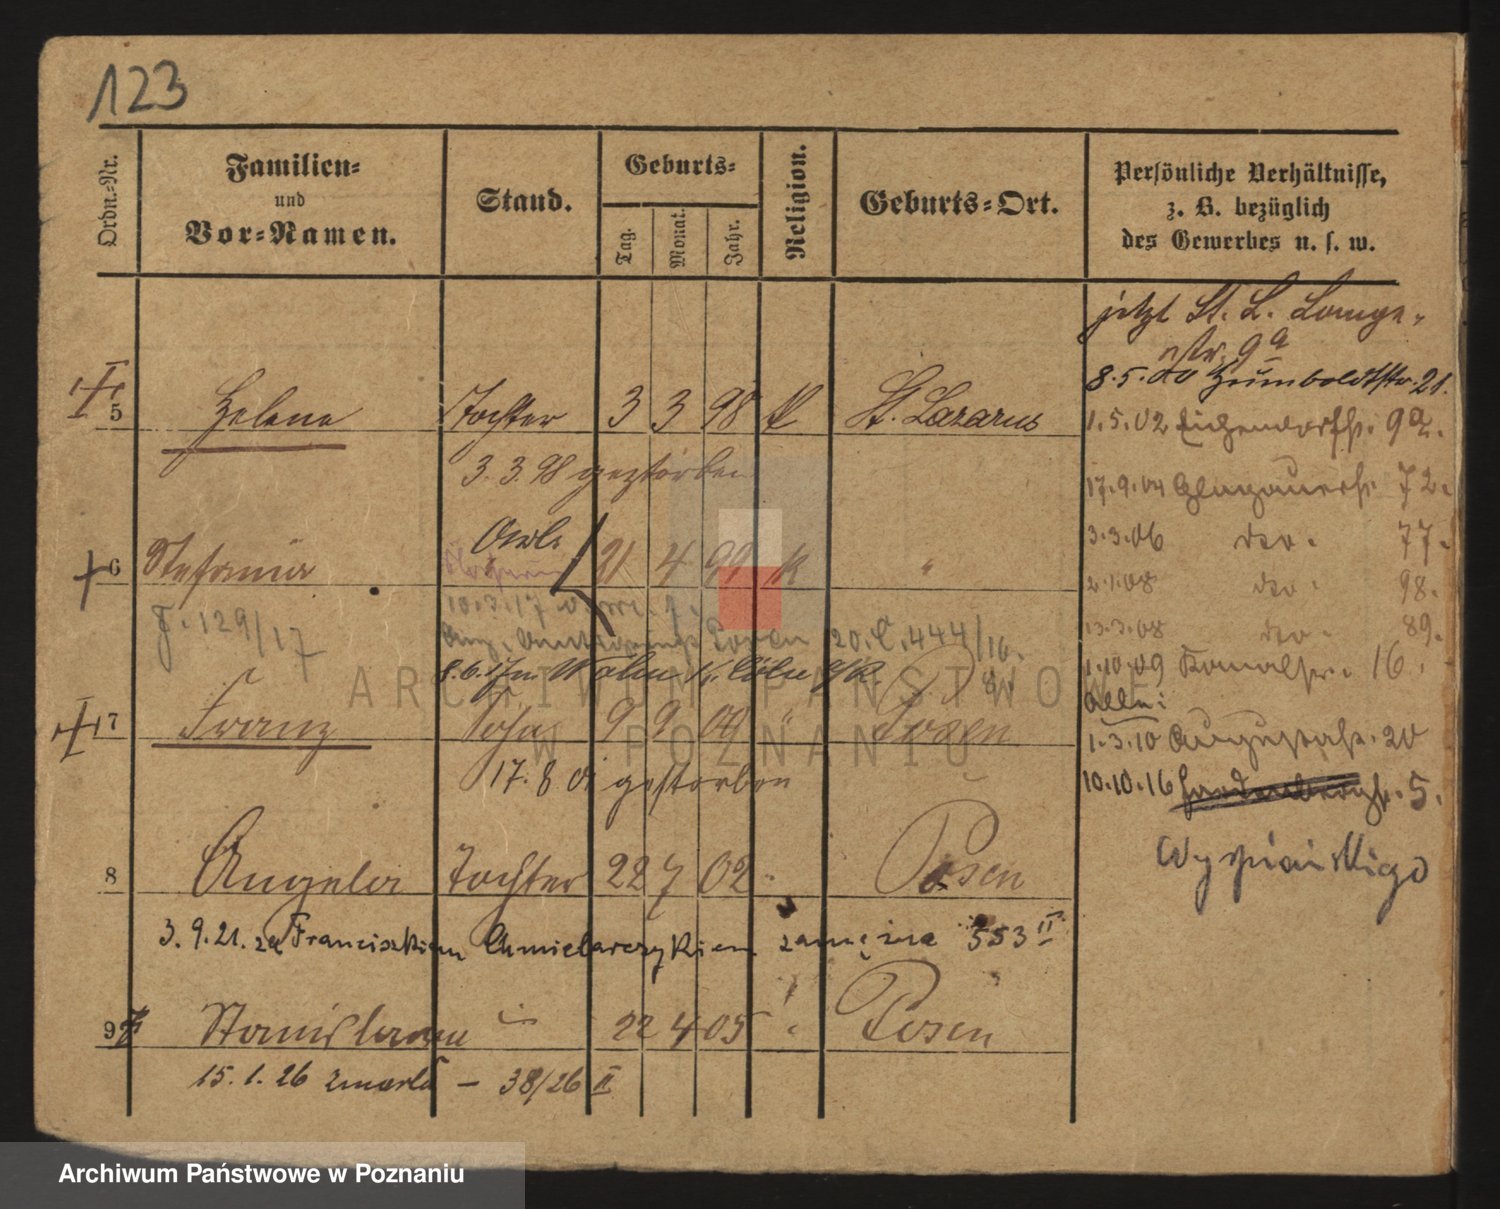 123
Ordn.-Nr.
Familien-
und
Vor-Namen.
Stand.
Geburts-
Tag.
Monat.
Jahr.
Religion.
Geburts-Ort.
Persönliche Verhältnisse,
z. B. bezüglich
des Gewerbes u. s. w.
jetzt St. L. Lange-
str. 9a
8.5.00 Humboldtstr. 21.
5 Helene Tochter 3 3 98 k St. Lazarus
1.5.02 Eichendorffstr. 9a.
3.3.98 gestorben
17.9.04 Glogauerstr. 72.
3.3.06 do. 77.
6 Stefania 21 4 99 k "
2.1.08 do. 98.
10.3.17
J. 129/17
13.3.08 do. 89.
Posen 20.C.444/16.
1.10.09 Kanalstr. 16.
Allein:
7 Franz Sohn 9 9 00 " Posen
1.3.10 Augustastr. 20
17.8 01 gestorben
10.10.16 Hardenbergstr. 5.
Wyspiańskiego
8 Angela Tochter 22 7 02 " Posen
3.9.21. za Franciszkiem Chmielarczykiem zamężna 553 II
9 Stanislawa " 22 4 05 " Posen
15.1.26 zmarła - 38/26 II
ARCHIWUM PAŃSTWOWE
W POZNANIU
Archiwum Państwowe w Poznaniu